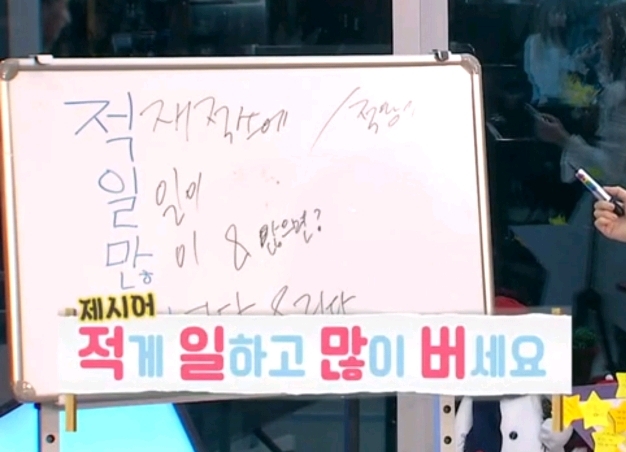 적재적소에 / 적당이
일 일이
많 이 & 많으면?
제시어
적게 일하고 많이 버세요